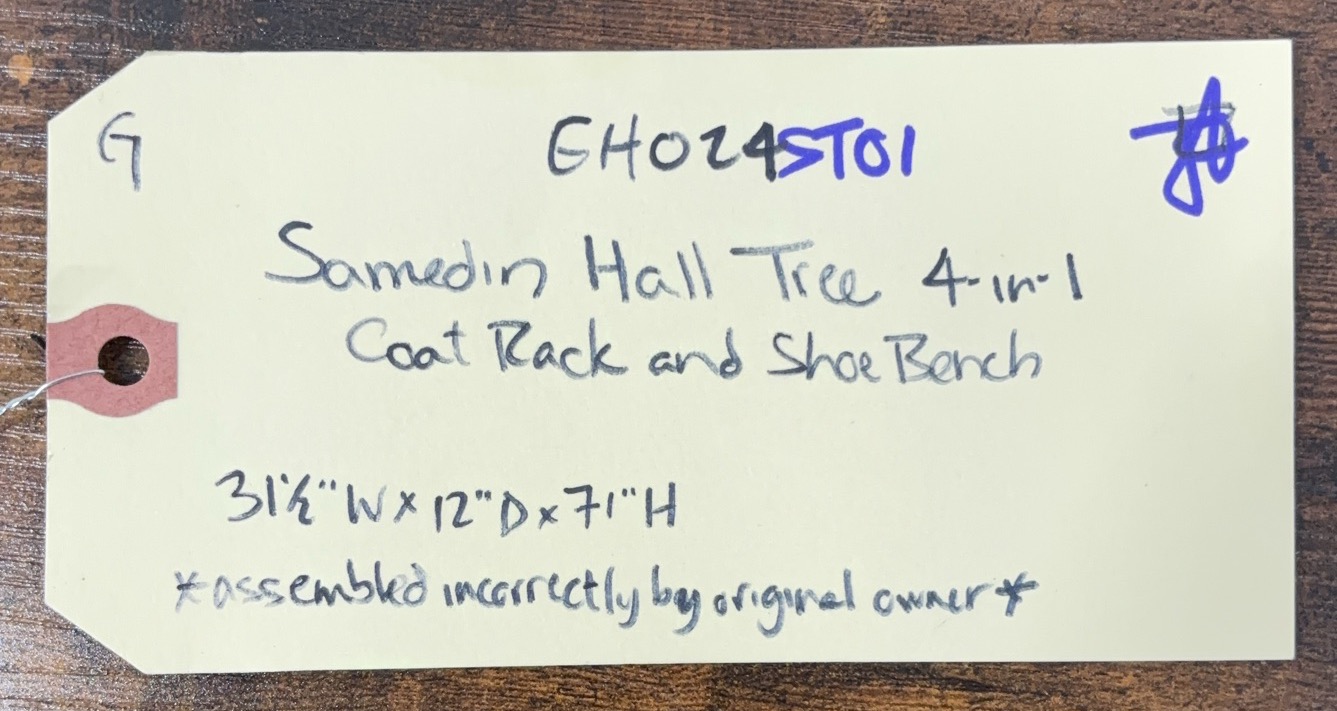 G
EH024ST01
Samedin Hall Tree 4-in-1
Coat Rack and Shoe Bench
31½" W x 12" D x 71" H
*assembled incorrectly by original owner*